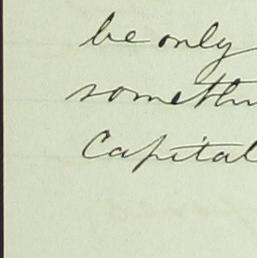 be only
somethin
Capital